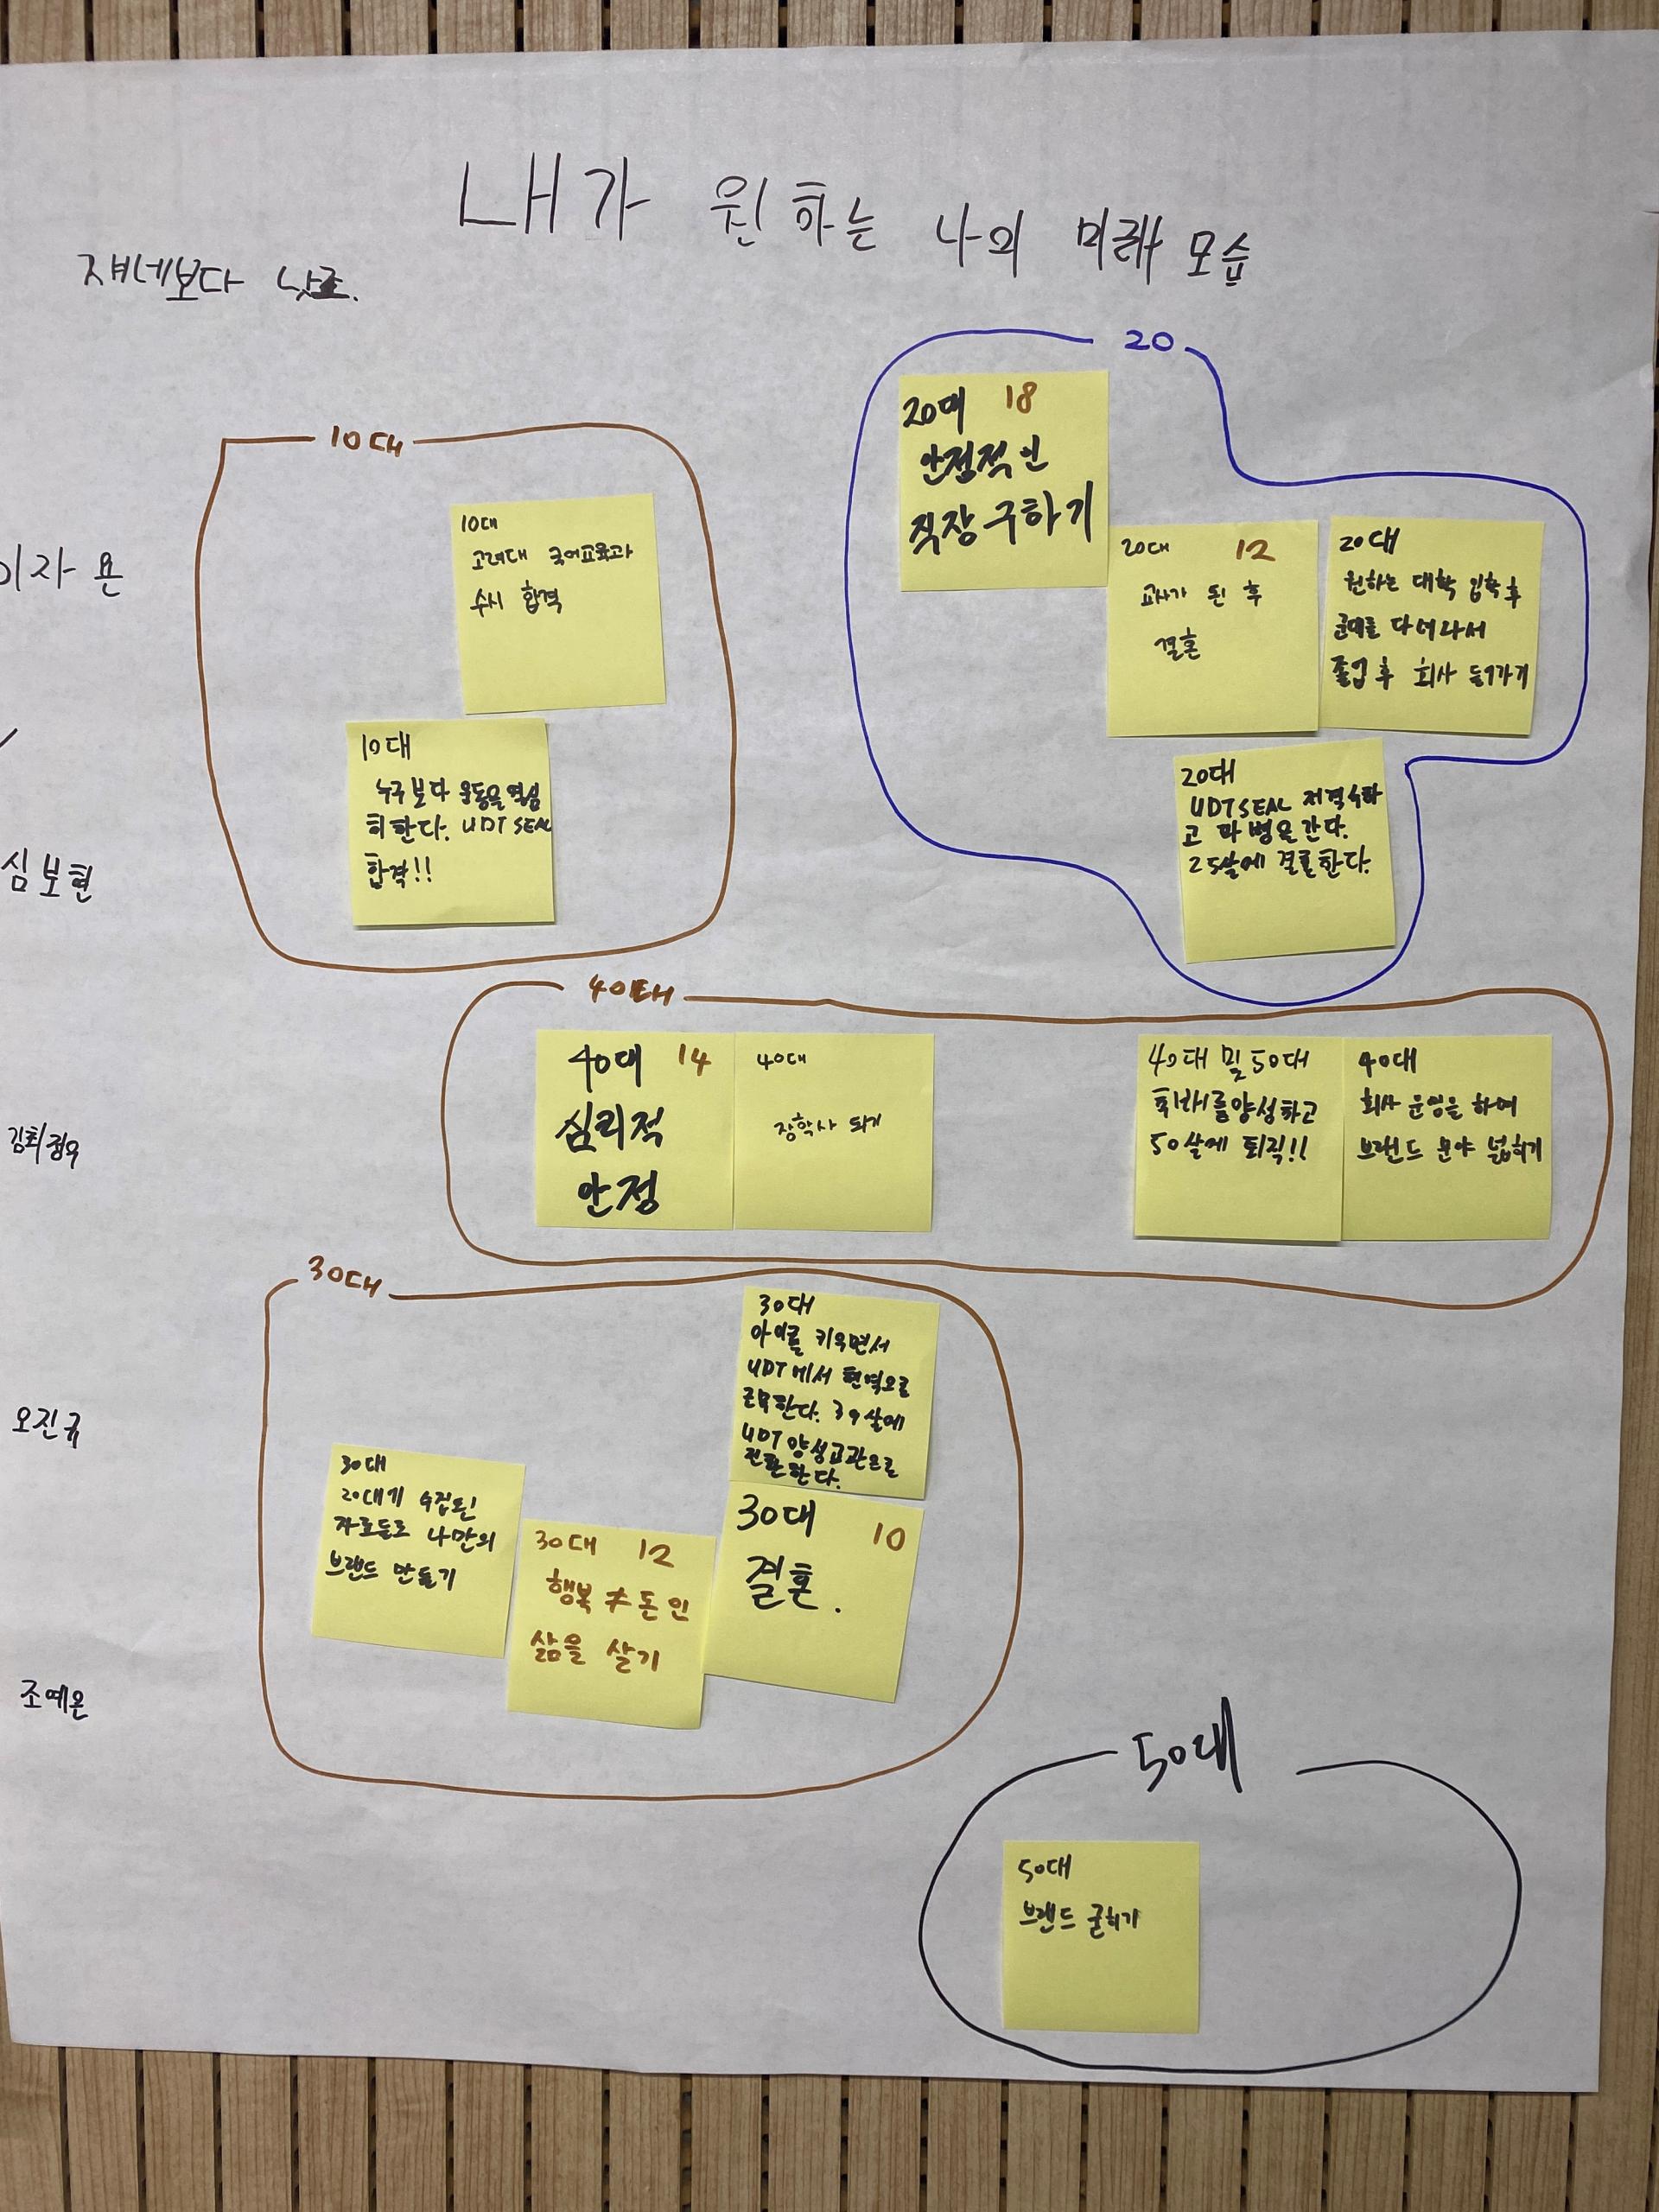 내가 원하는 나의 미래 모습
쟤네보다 낫조.
이자은
심보현
김최정우
오진규
조예은
10대
10대
고려대 국어교육과
수시 합격
10대
누구보다 운동을 열심
히 한다. UDT SEAL
합격!!
20
20대 18
안정적인
직장 구하기
20대 12
교사가 된 후
결혼
20대
원하는 대학 입학 후
군대를 다녀와서
졸업 후 회사 들어가기
20대
UDT SEAL 저격수하
고 파병을 간다.
25살에 결혼한다.
40대
40대 14
심리적
안정
40대
장학사 되기
40대 및 50대
후배를 양성하고
50살에 퇴직!!
40대
회사 운영을 하며
브랜드 분야 넓히기
30대
30대
아이를 키우면서
UDT에서 현역으로
근무한다. 39살에
UDT 양성교관으로
전환한다.
30대
20대기 수집된
자료들로 나만의
브랜드 만들기
30대 12
행복 ≠ 돈 인
삶을 살기
30대 10
결혼.
50대
50대
브랜드 굳히기